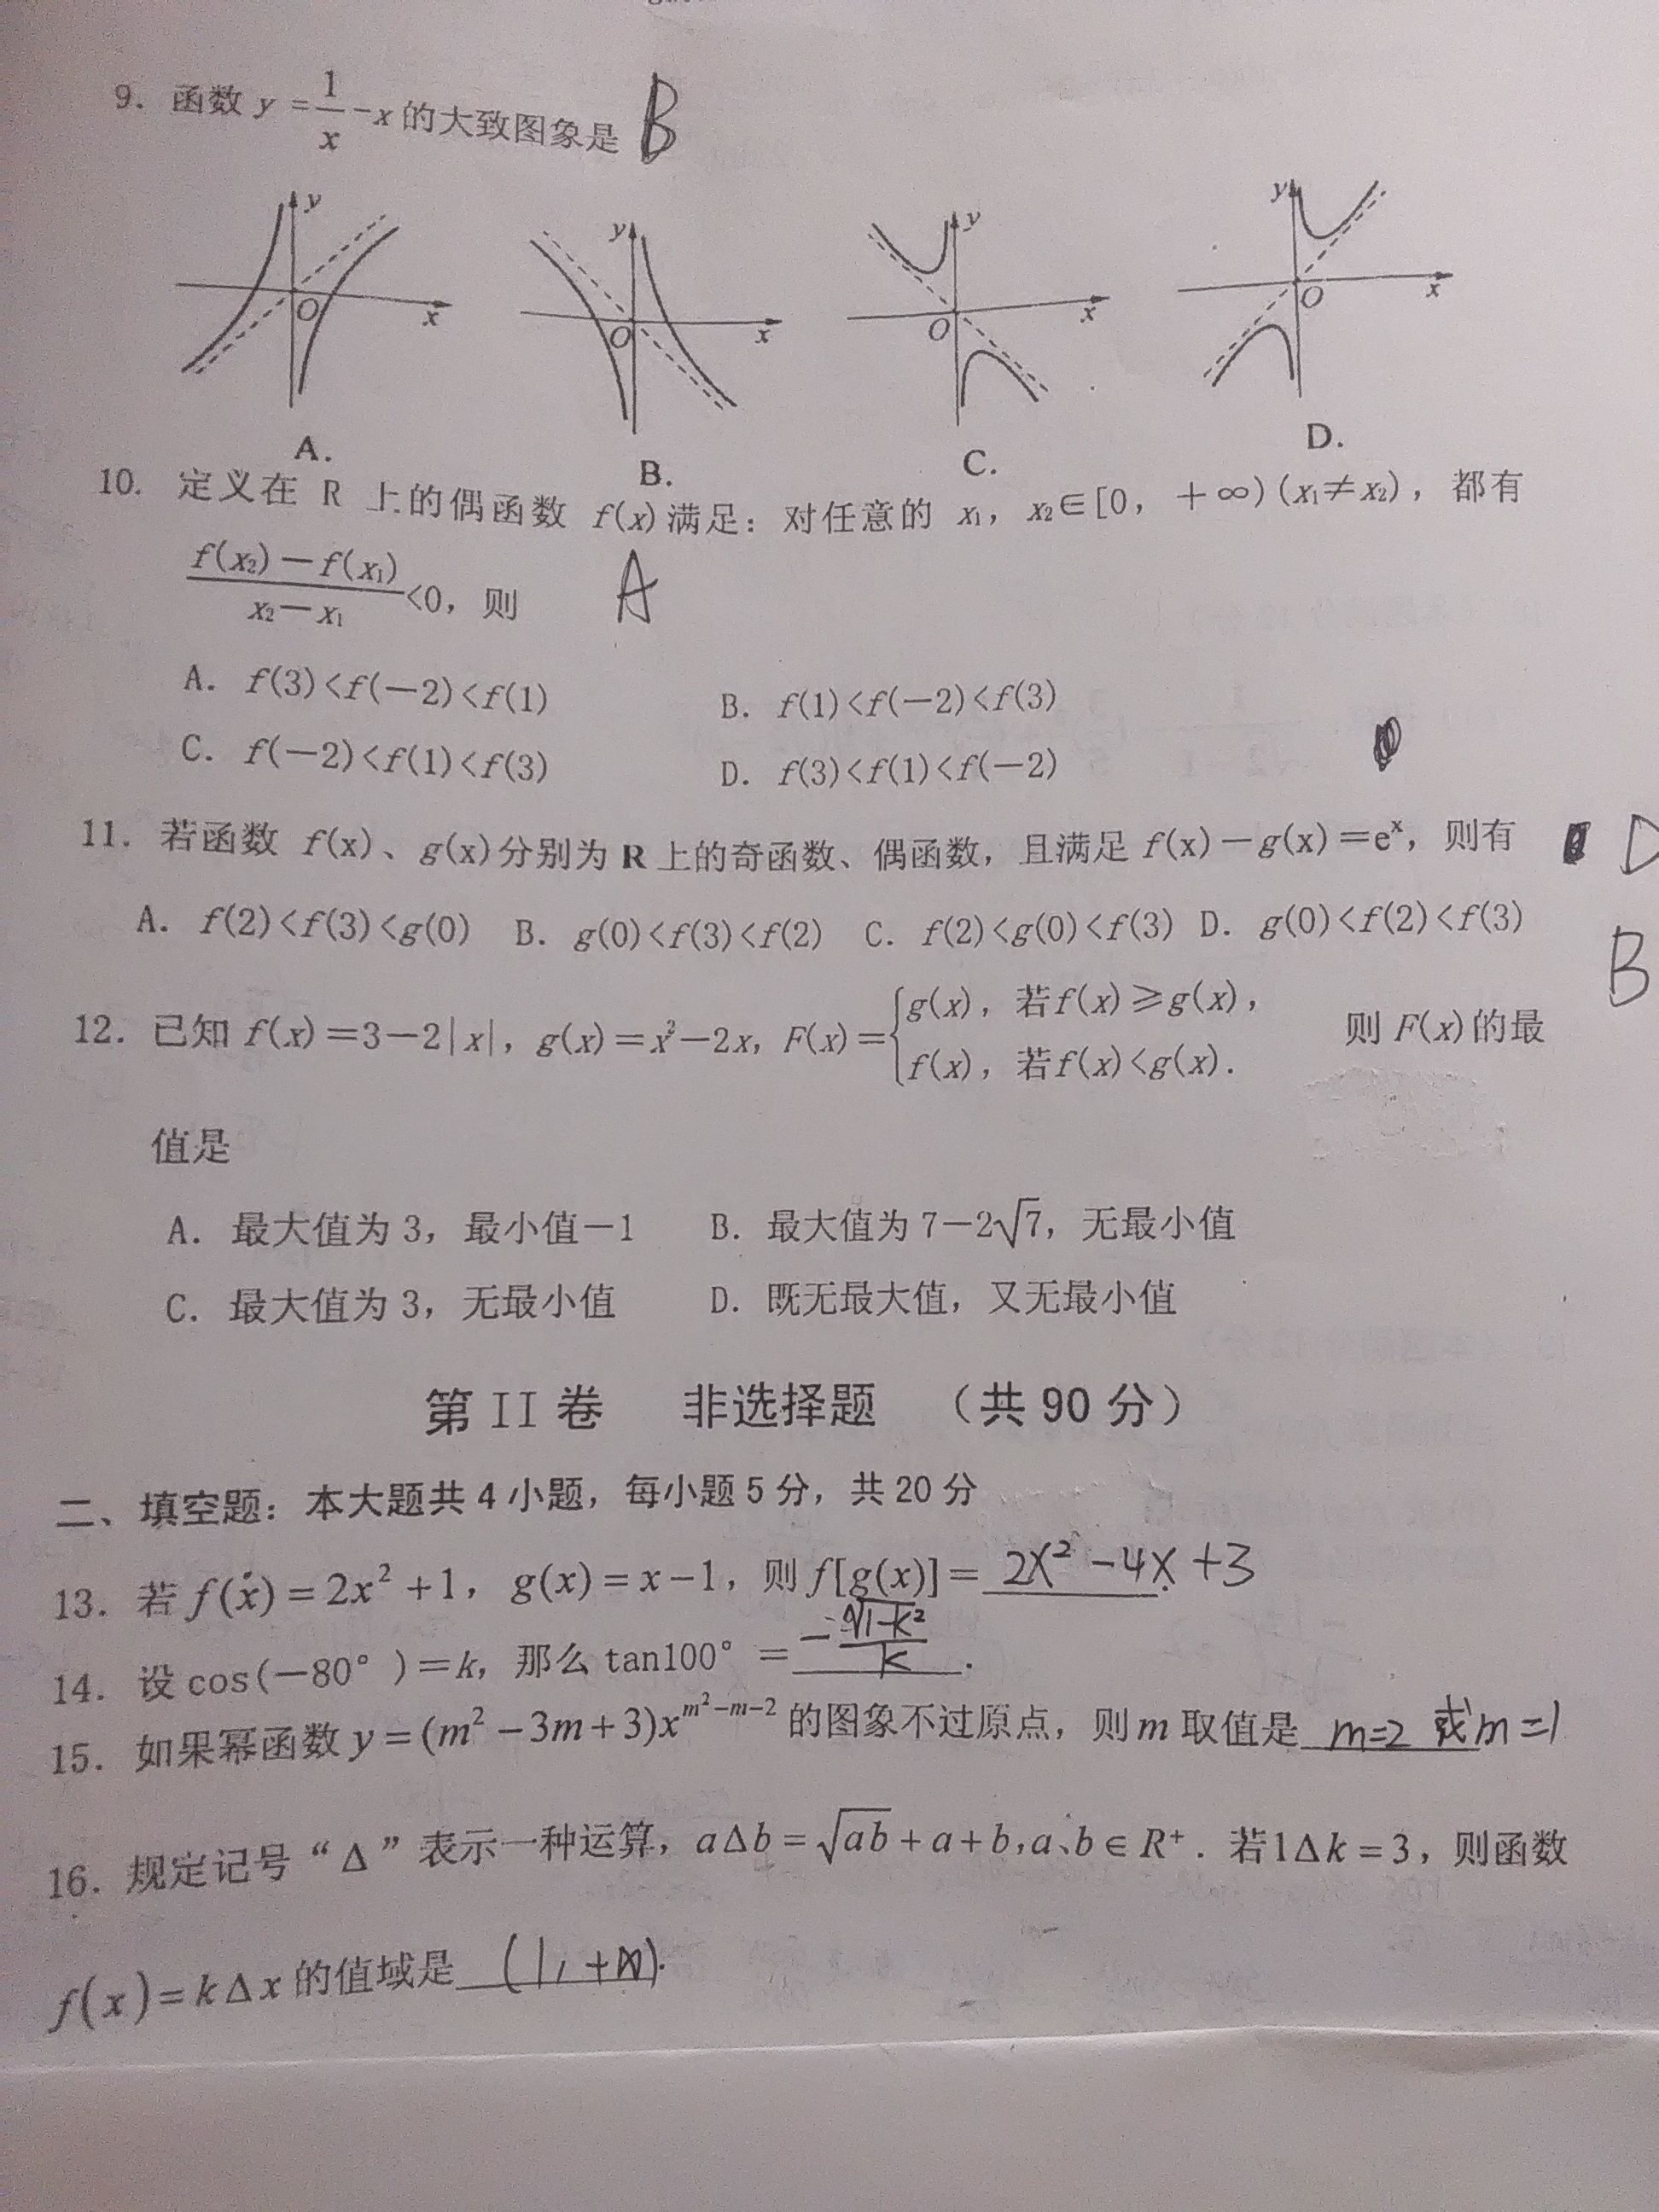 9. 函数 y = 1/x - x 的大致图象是 B
y y y y
O x O x O x O x
A. B. C. D.
10. 定义在 R 上的偶函数 f(x)满足：对任意的 x₁，x₂∈[0，＋∞)(x₁≠x₂)，都有
(f(x₂)－f(x₁))/(x₂－x₁)<0，则 A
A. f(3)<f(－2)<f(1) B. f(1)<f(－2)<f(3)
C. f(－2)<f(1)<f(3) D. f(3)<f(1)<f(－2)
11. 若函数 f(x)、g(x)分别为 R 上的奇函数、偶函数，且满足 f(x)－g(x)＝eˣ，则有 D
A. f(2)<f(3)<g(0) B. g(0)<f(3)<f(2) C. f(2)<g(0)<f(3) D. g(0)<f(2)<f(3)
B
12. 已知 f(x)＝3－2|x|，g(x)＝x²－2x，F(x)＝{g(x)，若f(x)≥g(x)，
f(x)，若f(x)<g(x). 则 F(x)的最
值是
A. 最大值为 3，最小值－1 B. 最大值为 7－2√7，无最小值
C. 最大值为 3，无最小值 D. 既无最大值，又无最小值
第 II 卷 非选择题 （共 90 分）
二、填空题：本大题共 4 小题，每小题 5 分，共 20 分
13. 若 f(x) = 2x² + 1，g(x) = x − 1，则 f[g(x)] = 2x² − 4x + 3
14. 设 cos(－80°)＝k，那么 tan100°＝ −√(1−k²)/k .
15. 如果幂函数 y = (m² − 3m + 3)x^(m²−m−2) 的图象不过原点，则 m 取值是 m=2 或 m=1
16. 规定记号“Δ”表示一种运算，aΔb = √ab + a + b，a、b ∈ R⁺. 若1Δk = 3，则函数
f(x) = kΔx 的值域是 (1, +∞).